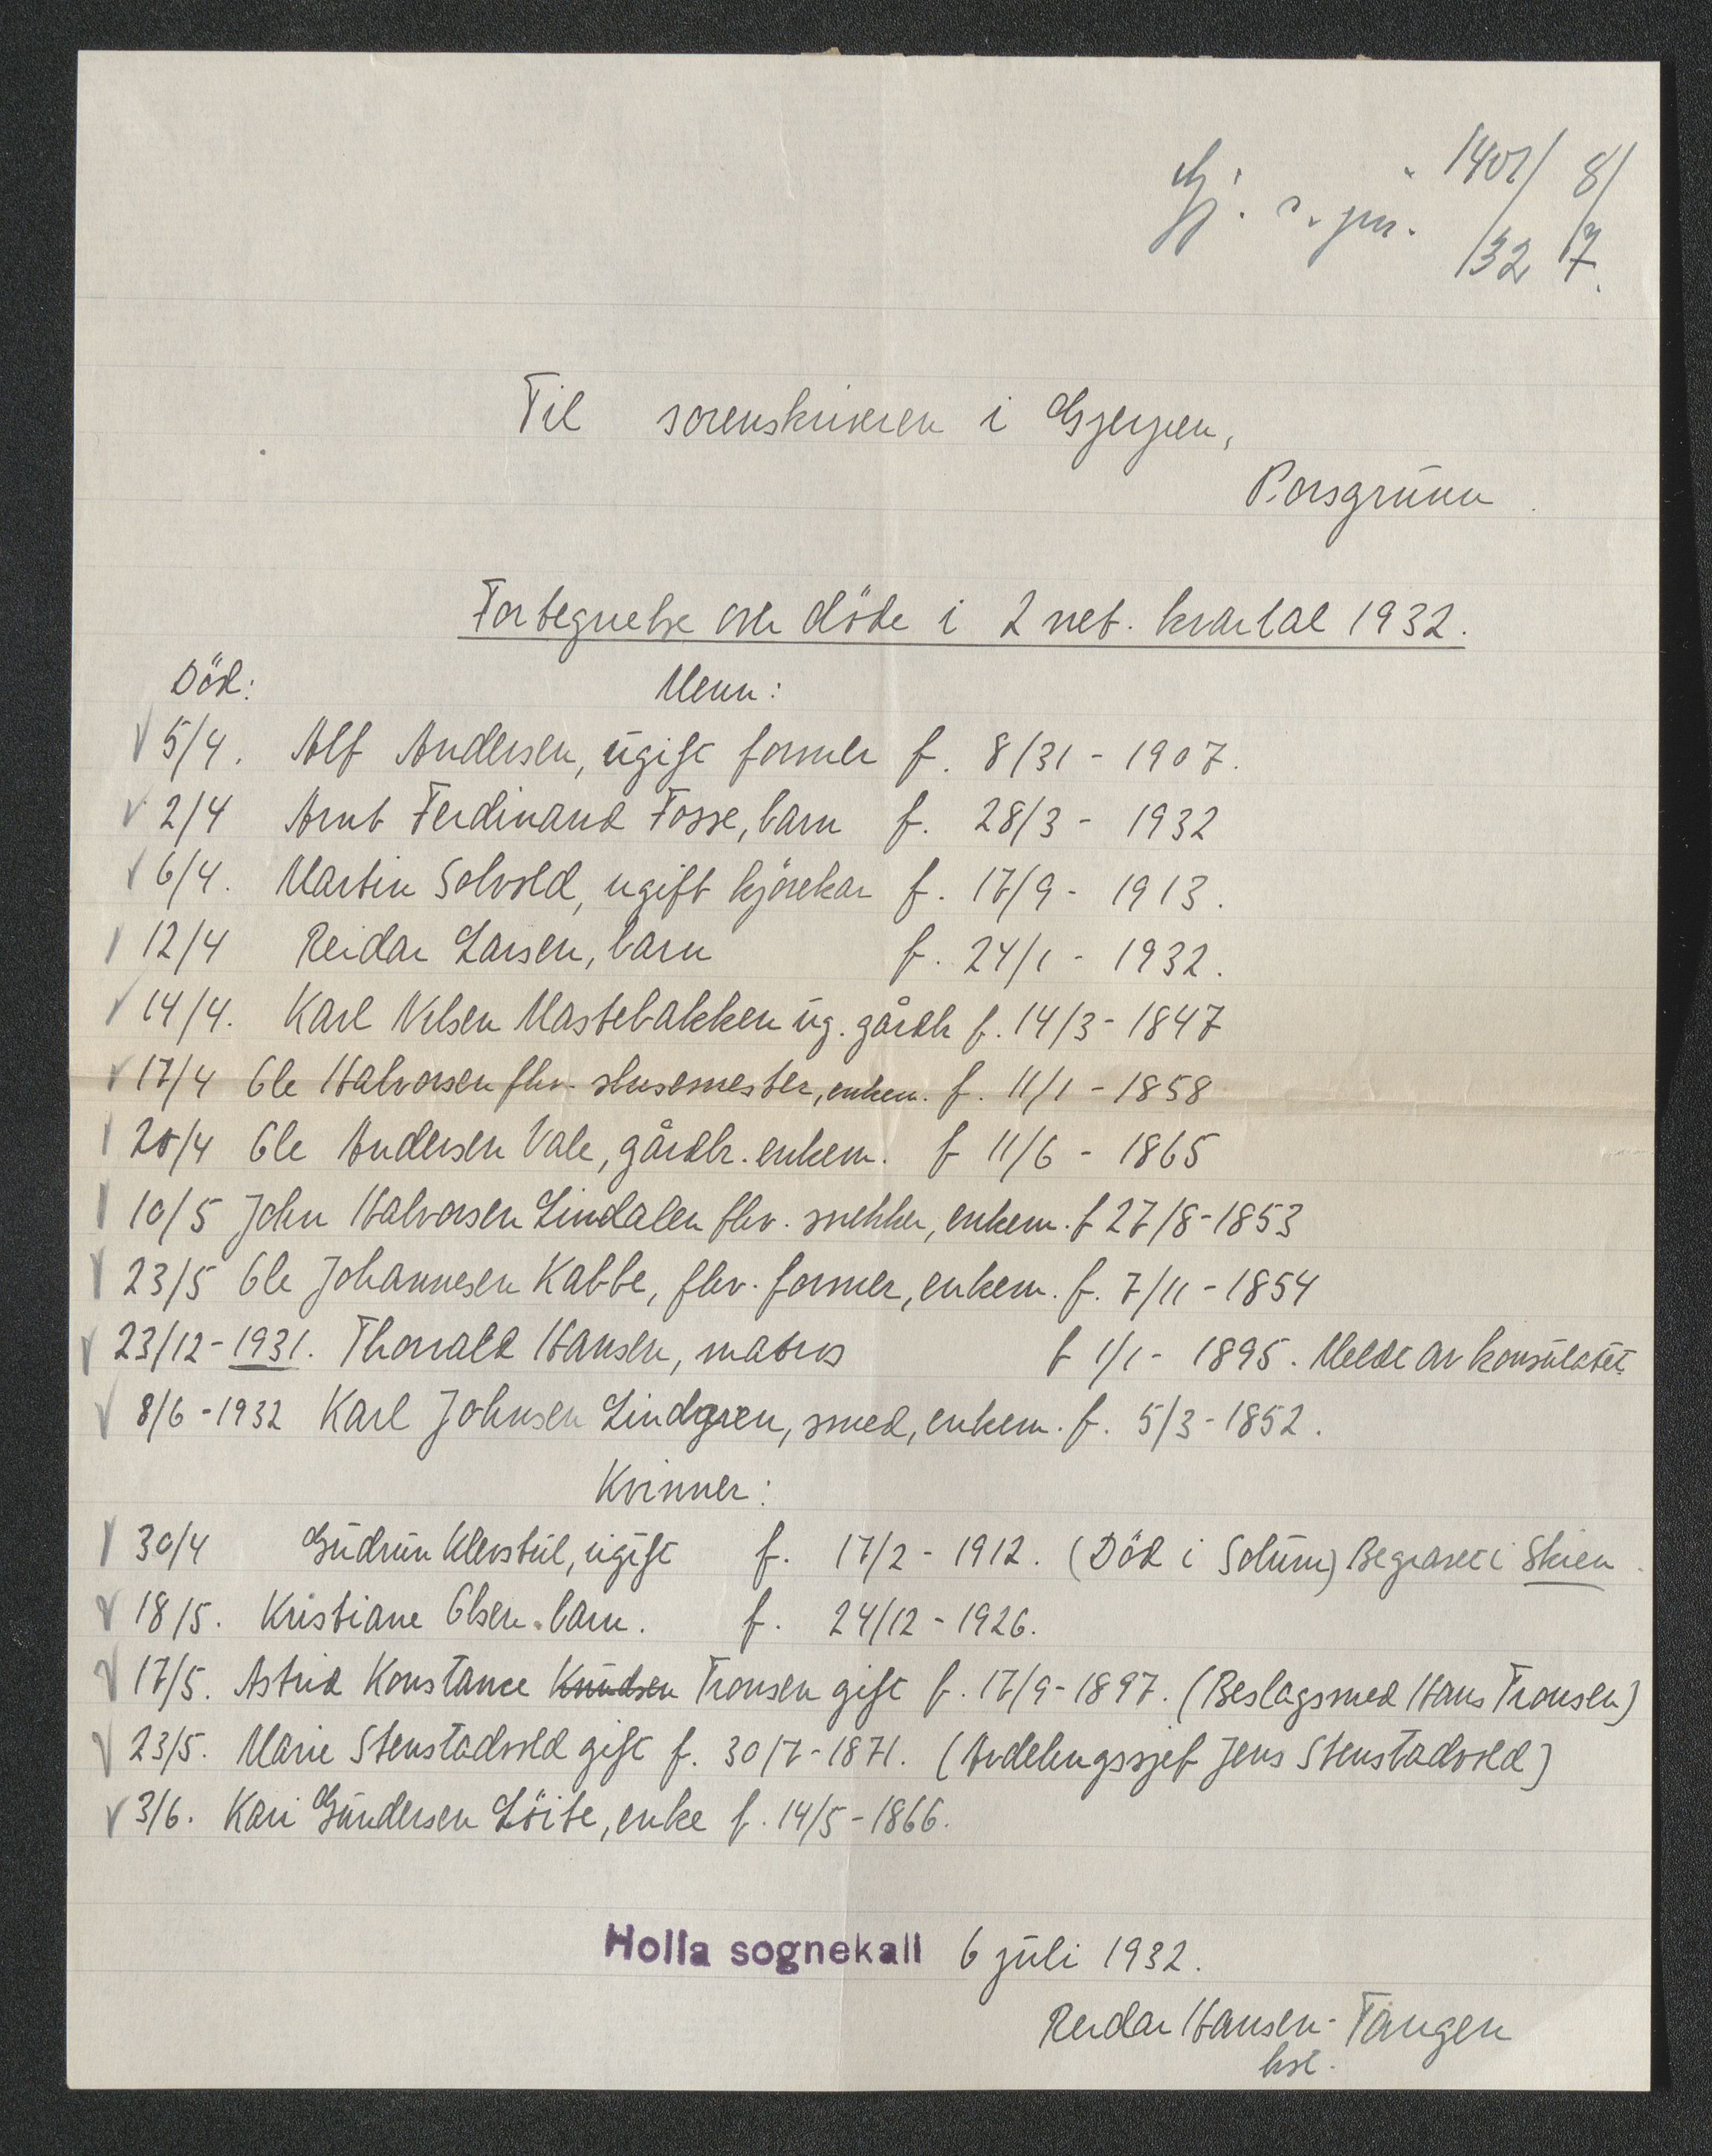 Gj. s. jnr. 1401/ 8/
/32 7.
Til sorenskriveren i Gjerpen,
Porsgrunn.
Fortegnelse over döde i 2 net. kvartal 1932.
Död: Menn:
5/4. Alf Andersen, ugift former f. 8/31 - 1907.
2/4 Arnt Ferdinand Fosse, barn f. 28/3 - 1932
6/4. Martin Solvold, ugift kjörekar f. 17/9 - 1913.
12/4 Reidar Larsen, barn f. 24/1 - 1932.
14/4. Karl Nilsen Mastebakken ug. gårdbr f. 14/3 - 1847
17/4 Ole Halvorsen fhv. slusemester, enkem. f. 11/1 - 1858
20/4 Ole Andersen Vale, gårdbr. enkem. f 11/6 - 1865
10/5 John Halvorsen Lindalen fhv. snekker, enkem. f 27/8 - 1853
23/5 Ole Johannesen Kabbe, fhv. former, enkem. f. 7/11 - 1854
23/12 - 1931. Thorvald Hansen, matros f 1/1 - 1895. Meldt av konsulatet
8/6 - 1932 Karl Johnsen Lindgren, smed, enkem. f. 5/3 - 1852.
Kvinner:
30/4 Gudrun Klevstul, ugift f. 17/2 - 1912. (Död i Solum) Begravet i Skien.
18/5. Kristiane Olsen. barn. f. 24/12 - 1926.
17/5. Astrid Konstance Knudsen Tronsen gift f. 17/9 - 1897. (Beslagsmed Hans Tronsen)
23/5. Marie Stenstadvold gift f. 30/7 - 1871. (Avdelingssjef Jens Stenstadvold)
3/6. Kari Gundersen Löite, enke f. 14/5 - 1866.
Holla sognekall 6 juli 1932.
Reidar Hansen-Tangen
kst.